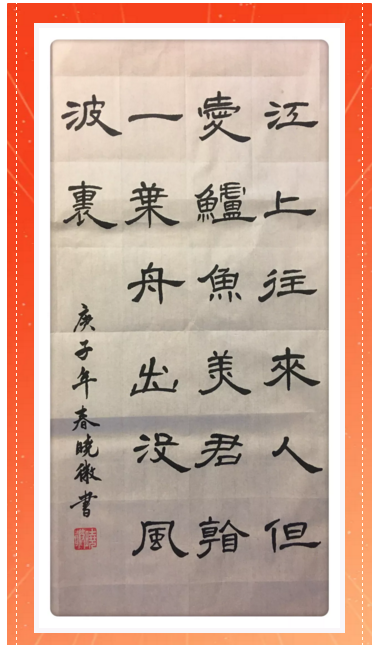 江上往來人但
愛鱸魚美君看
一葉舟出沒風
波裏
庚子年春曉徽書